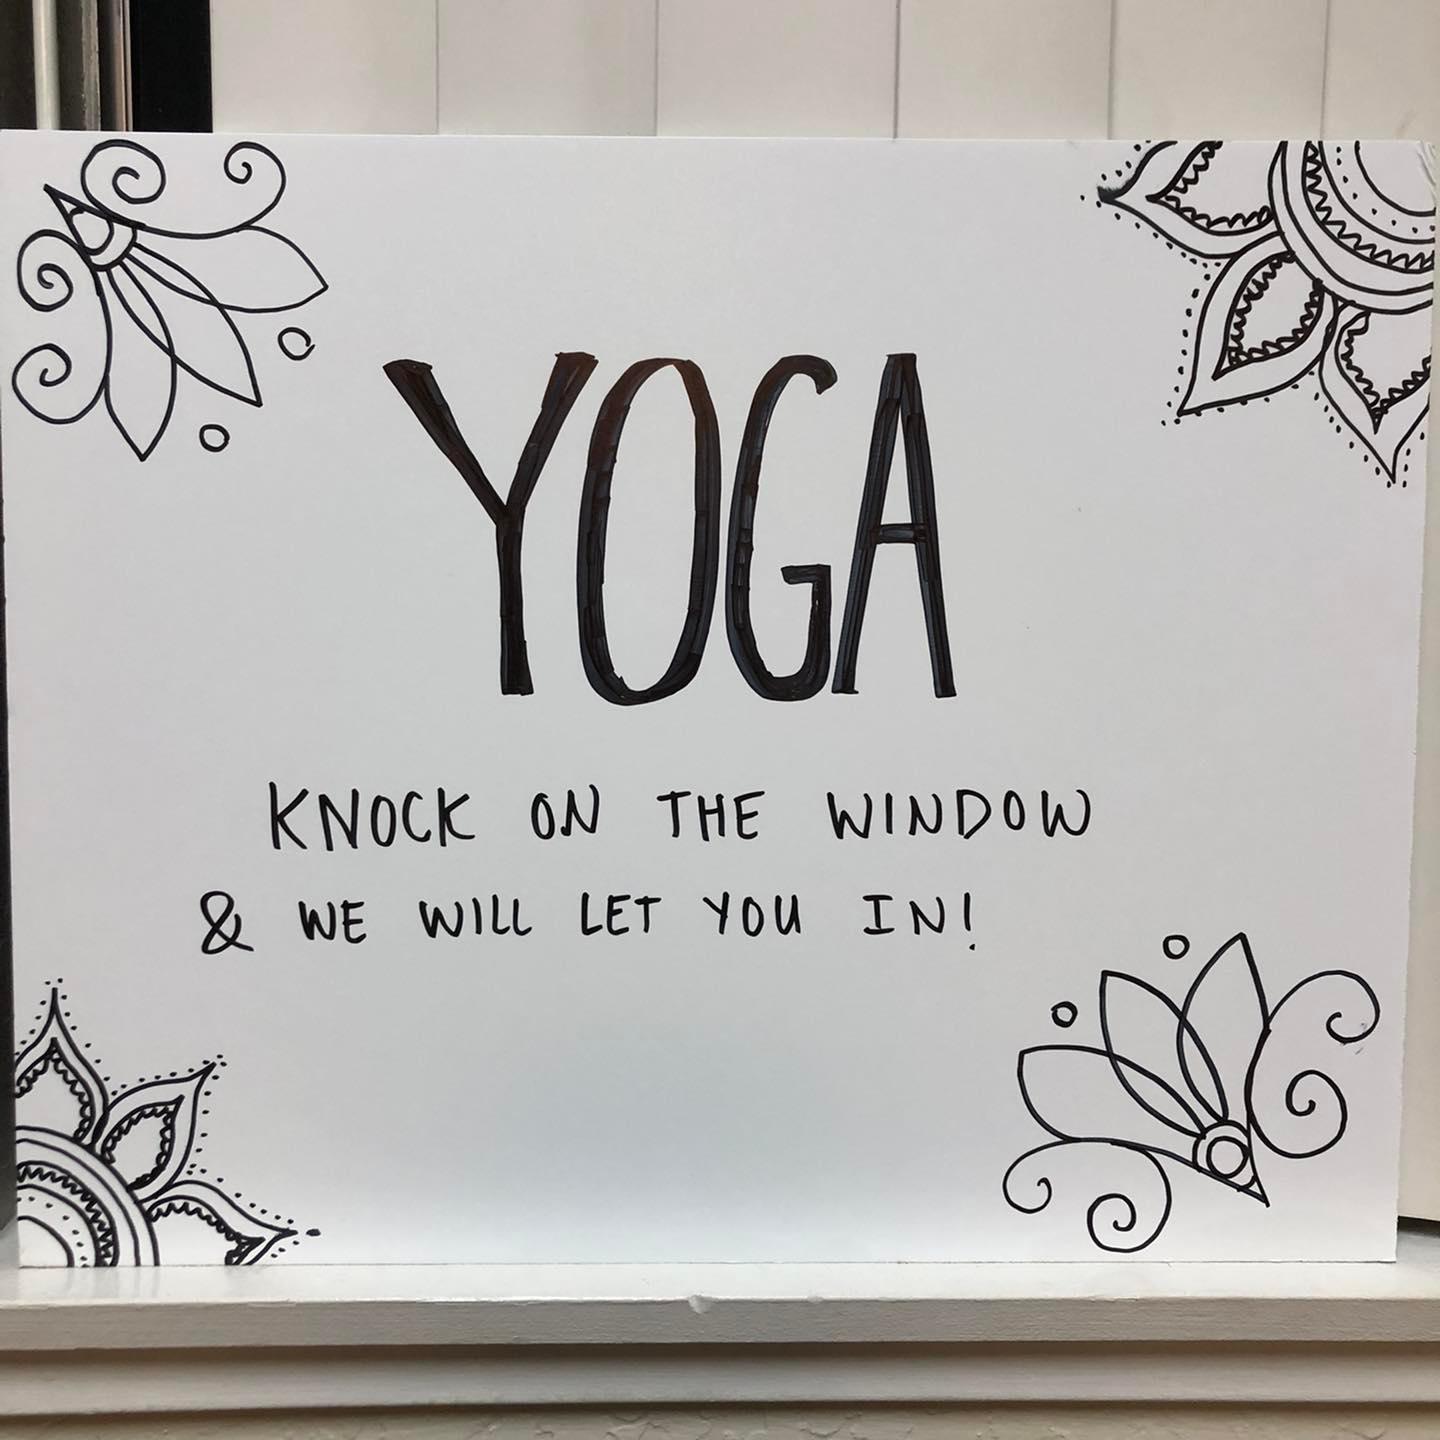 YOGA
KNOCK ON THE WINDOW
& WE WILL LET YOU IN!